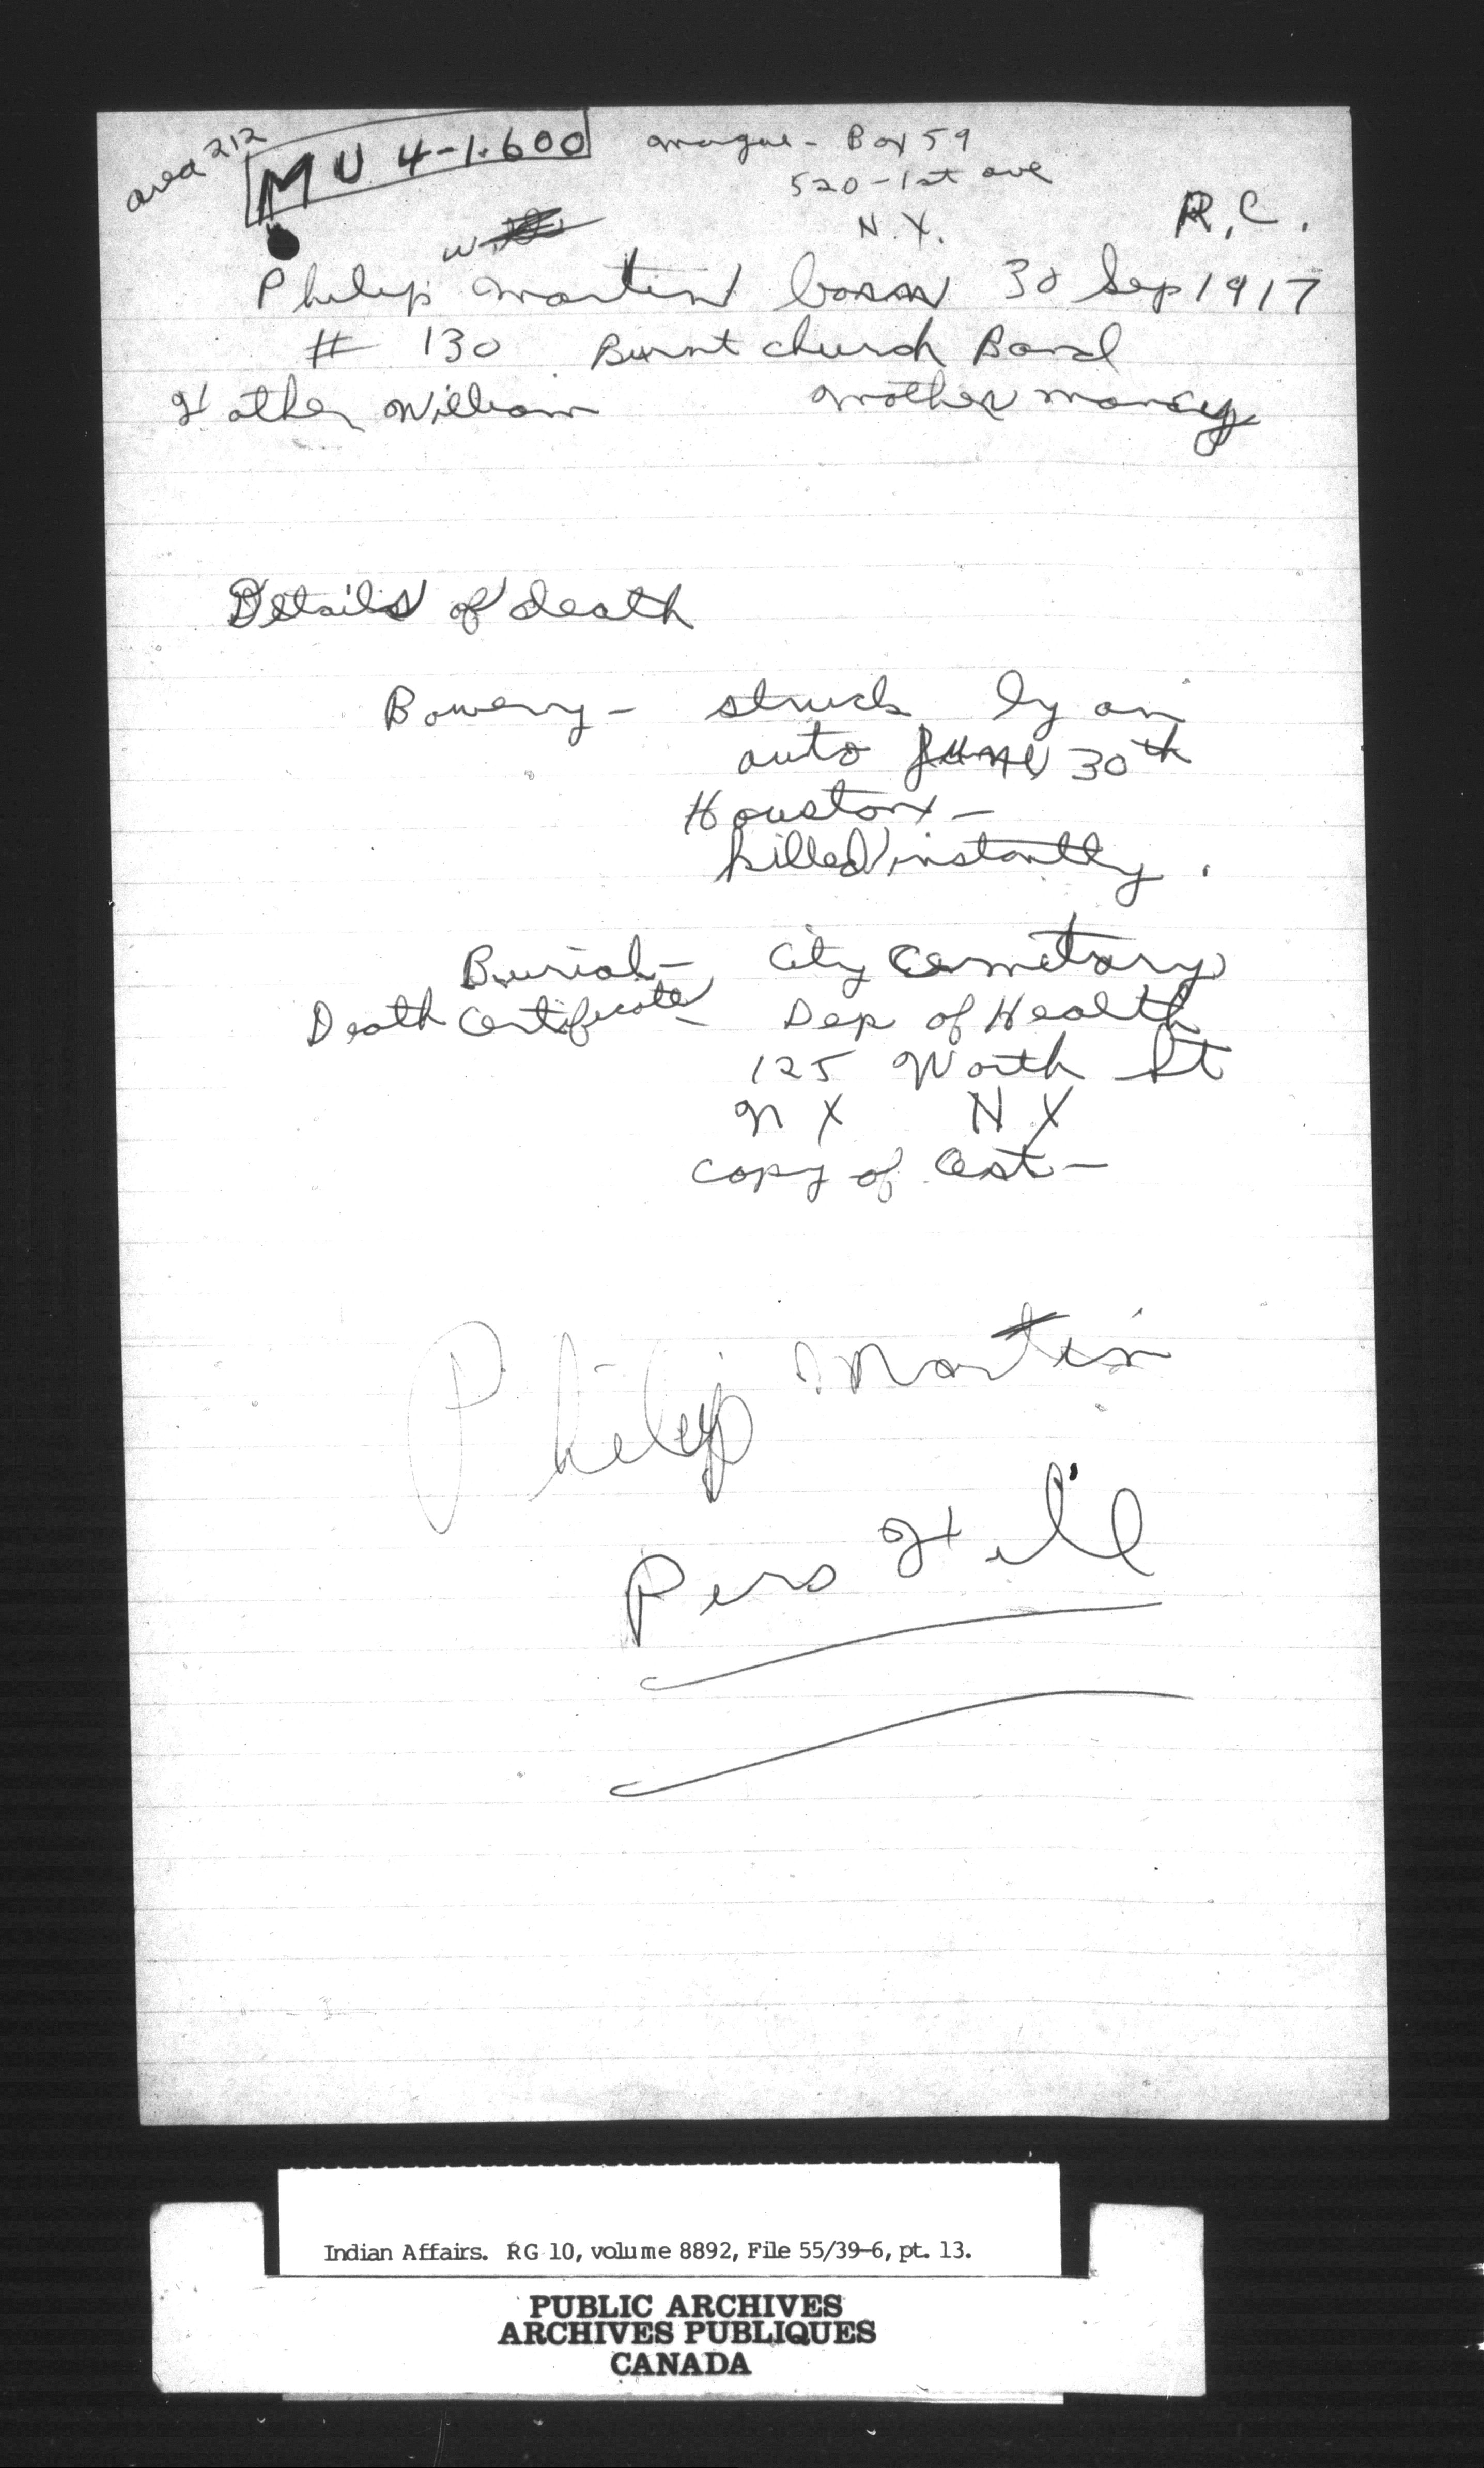 area 212
MU 4-1.600
morgue - Box 59
520 - 1st ave
N.Y.
R.C.
Philip Martin born 30 Sep 1917
# 130 Burnt church Band
Father William mother
Details of death
Bowery - struck by an
auto June 30th
Houston -
killed instantly.
Burial - City Cemetary
Death Certificate - Dep of Health
125 Worth St
N Y N.Y
copy of Cert -
Philip Martin
Pers File
Indian Affairs. RG 10, volume 8892, File 55/39-6, pt. 13.
PUBLIC ARCHIVES
ARCHIVES PUBLIQUES
CANADA